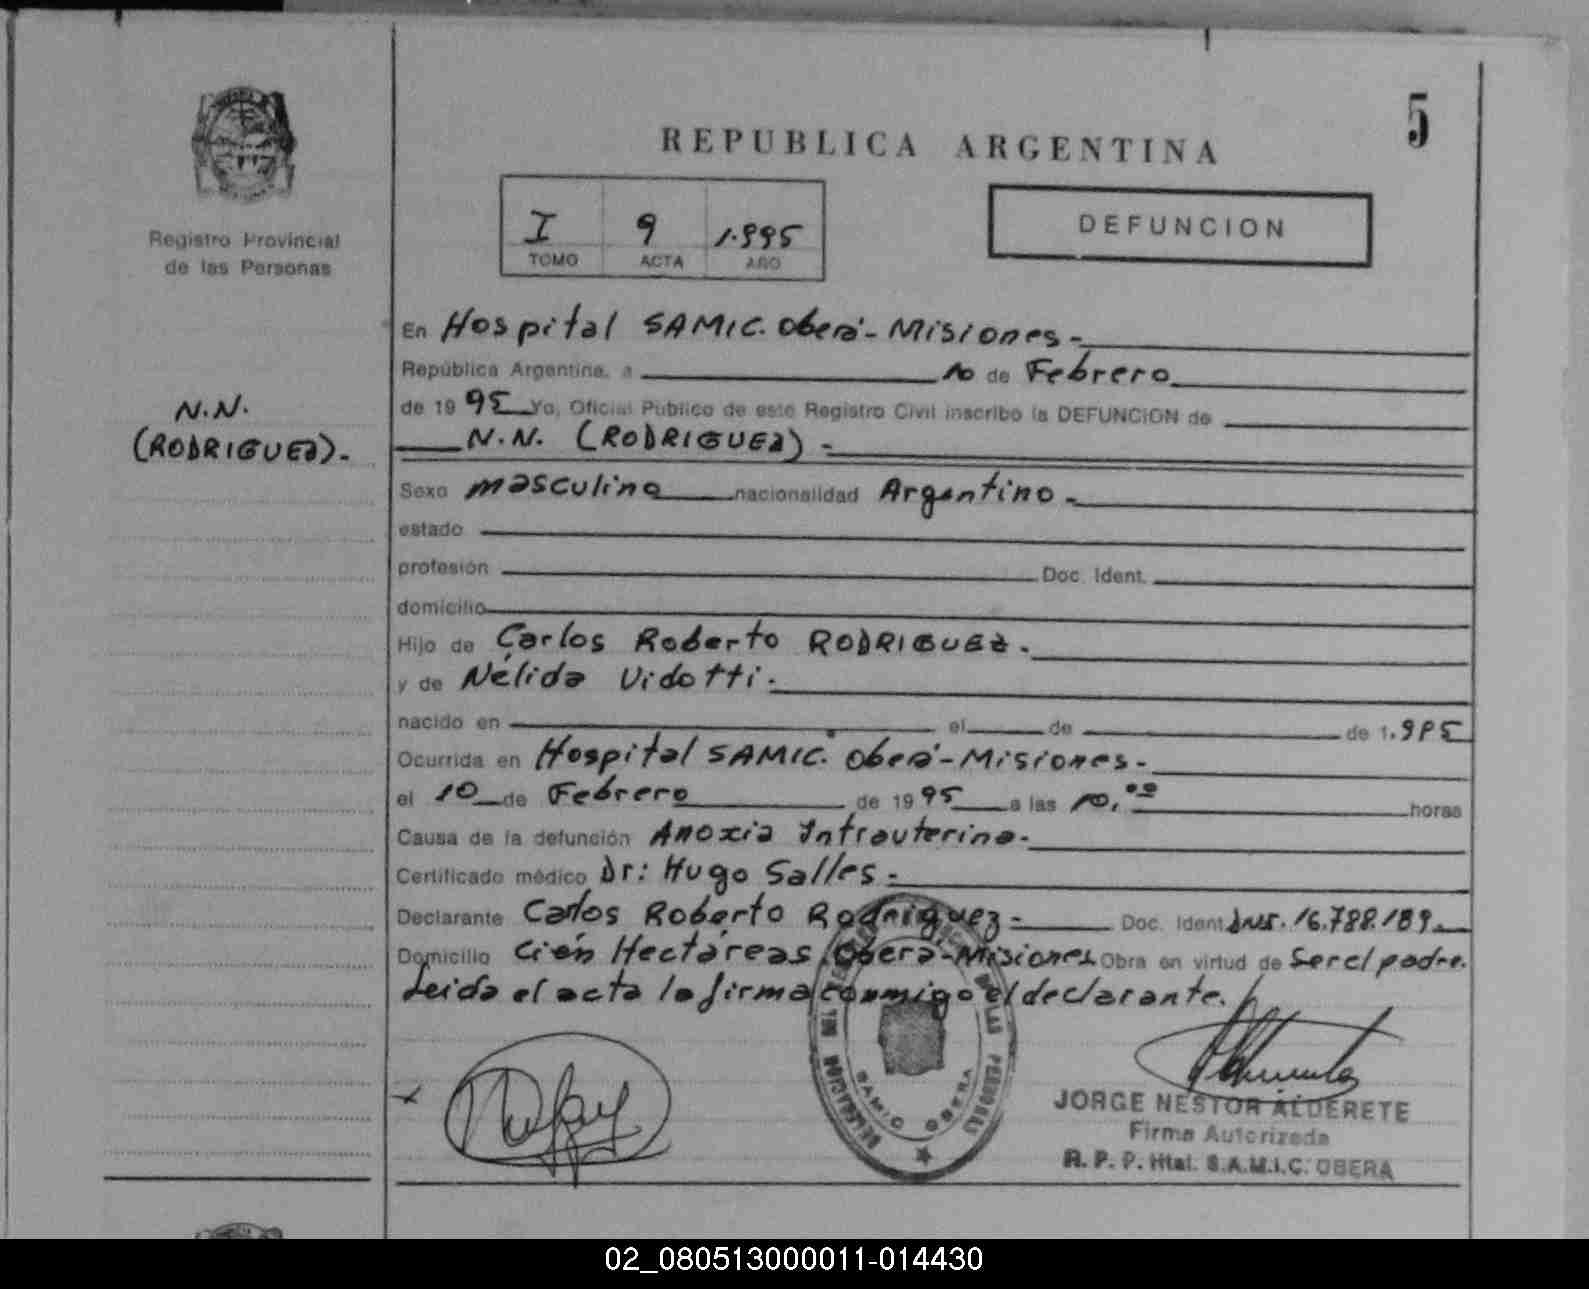 5
REPUBLICA ARGENTINA
I 9 1.995
TOMO ACTA AÑO
DEFUNCION
Registro Provincial
de las Personas
N.N.
(RODRIGUEZ).-
En Hospital SAMIC. Oberá-Misiones-
República Argentina, a 10 de Febrero
de 19 95 Yo, Oficial Público de este Registro Civil inscribo la DEFUNCION de
N.N. (RODRIGUEZ)-
Sexo masculino nacionalidad Argentino-
estado
profesión Doc. Ident.
domicilio
Hijo de Carlos Roberto RODRIGUEZ.
y de Nélida Vidotti.
nacido en el de de 1.995
Ocurrida en Hospital SAMIC. Oberá-Misiones-
el 10 de Febrero de 19 95 a las 10,ºº horas
Causa de la defunción Anoxia Intrauterina-
Certificado médico Dr: Hugo Salles-
Declarante Carlos Roberto Rodriguez- Doc. Ident. 16.788.189
Domicilio Cien Hectáreas Oberá-Misiones Obra en virtud de Ser el padre.
Leida el acta la firma conmigo el declarante.
DELEGACION DEL
DE LAS PERSONAS
SAMIC OBERA
JORGE NESTOR ALDERETE
Firma Autorizada
R. P. P. Htal. S.A.M.I.C. OBERA
02_080513000011-014430